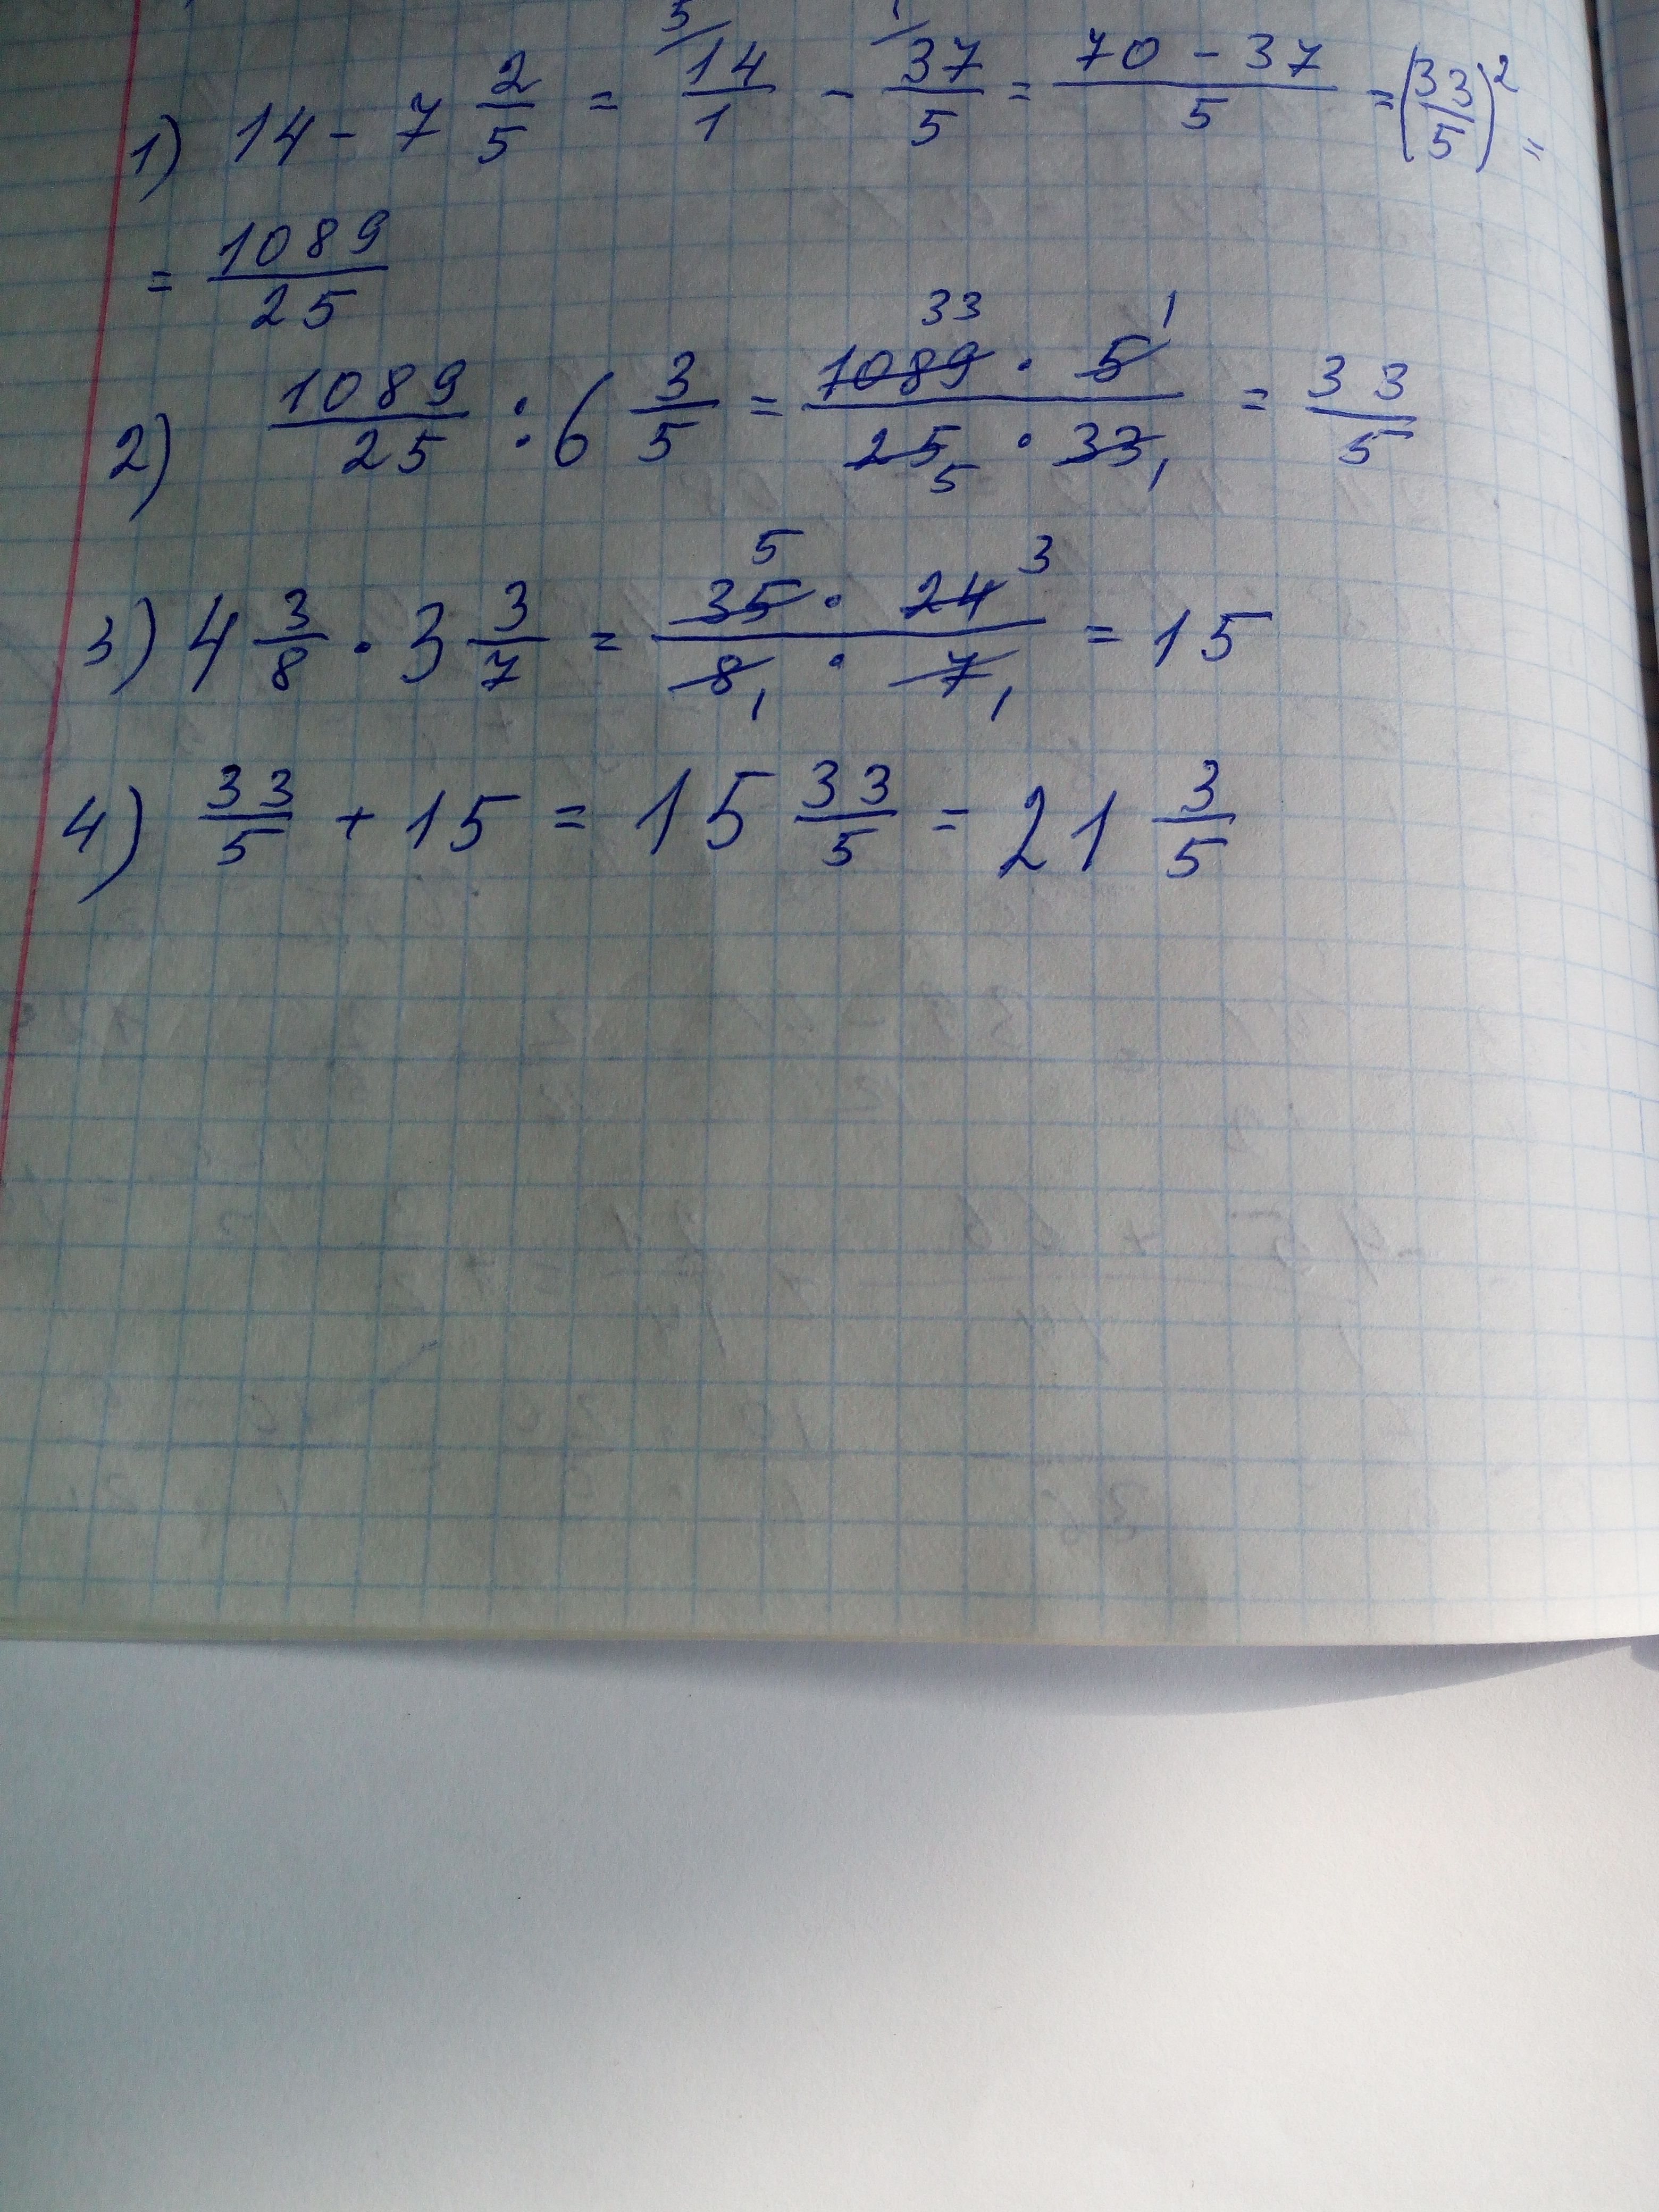 1) 14 - 7 2/5 = 5/ 14/1 - 1/ 37/5 = (70 - 37)/5 = (33/5)² =
= 1089/25
2) 1089/25 : 6 3/5 = (1089 33 · 5 1)/(25 5 · 33 1) = 33/5
3) 4 3/8 · 3 3/7 = (35 5 · 24 3)/(8 1 · 7 1) = 15
4) 33/5 + 15 = 15 33/5 = 21 3/5